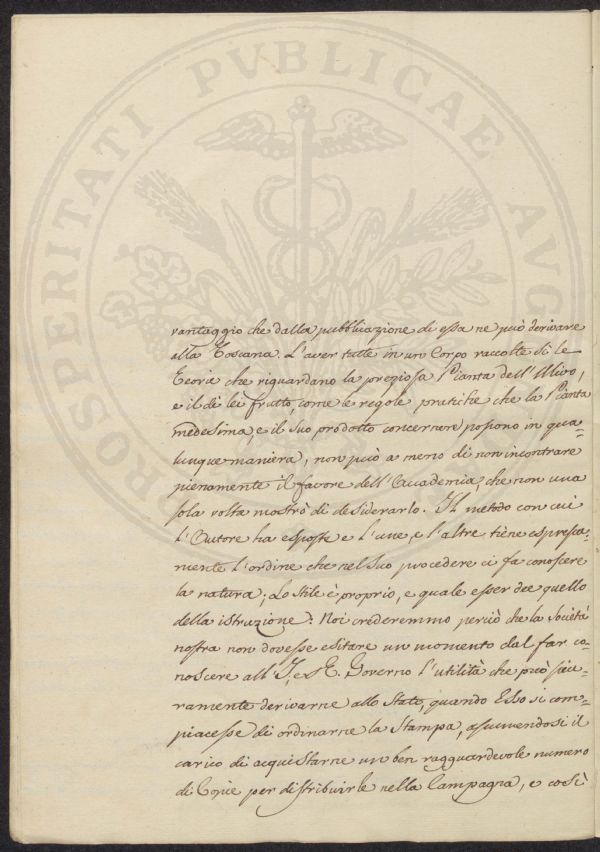 PROSPERITATI PVBLICAE AVG
vantaggio che dalla pubblicazione di essa ne può derivare
alla Toscana. L'aver tutte in un Corpo raccolte sì le
Teorie che riguardano la preziosa Pianta dell'Ulivo,
e il di lei frutto, come le regole pratiche che la Pianta
medesima, e il suo prodotto concernere possono in qua=
lunque maniera, non può a meno di non incontrare
pienamente il favore dell'Accademia, che non una
sola volta mostrò di desiderarlo. Il metodo con cui
l'Autore ha esposte e l'une, e l'altre tiene espressa=
mente l'ordine che nel suo procedere ci fa conoscere
la natura; Lo stile è proprio, e quale esser dee quello
della istruzione. Noi crederemmo perciò che la Società
nostra non dovesse esitare un momento dal far co=
noscere all'I. e R. Governo l'utilità che può sicu=
ramente derivarne allo Stato, quando Esso si com=
piacesse di ordinarne la Stampa, assumendosi il
carico di acquistarne un ben ragguardevole numero
di Copie per distribuirle nella Campagna, e così